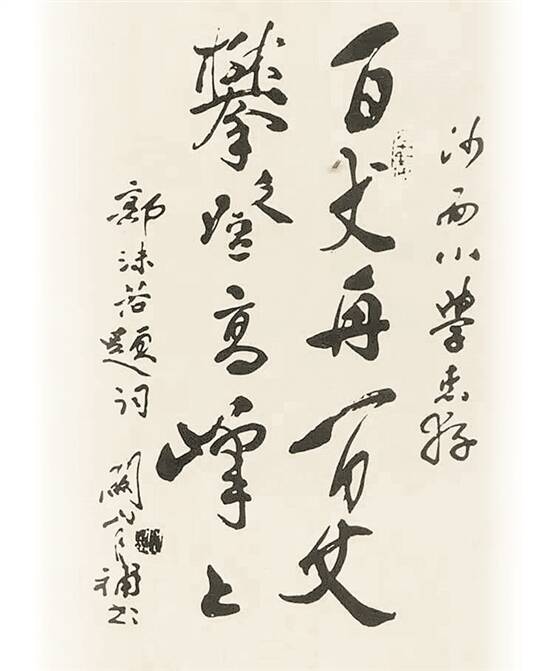 沙面小學惠存
百丈再百丈
攀登高峰上
郭沫若題詞
關山月補書